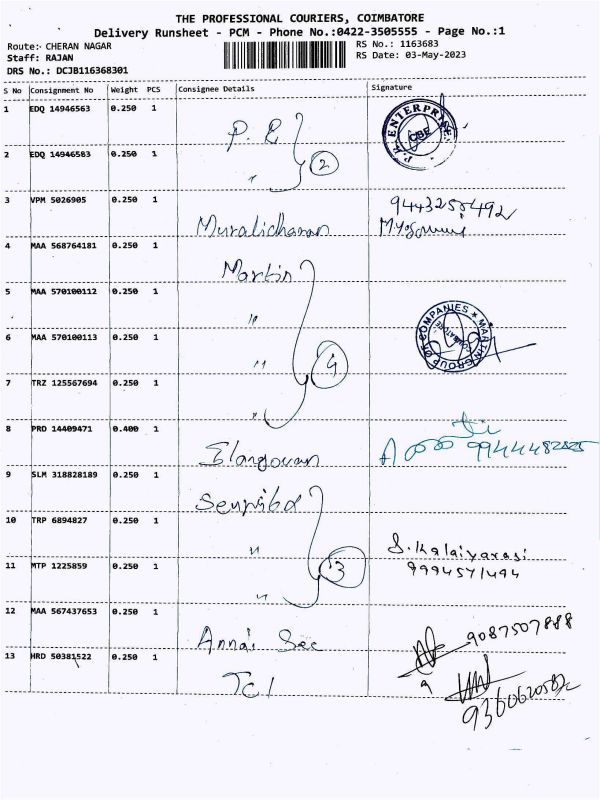 THE PROFESSIONAL COURIERS, COIMBATORE
Delivery Runsheet - PCM - Phone No.:0422-3505555 - Page No.:1
Route:- CHERAN NAGAR
RS No.: 1163683
Staff: RAJAN
RS Date: 03-May-2023
DRS No.: DCJB116368301
S No Consignment No Weight PCS Consignee Details Signature
1 EDQ 14946563 0.250 1
P. R
2 EDQ 14946583 0.250 1
" 2
3 VPM 5026905 0.250 1
Muralidharan
4 MAA 568764181 0.250 1
Martin
5 MAA 570100112 0.250 1
"
6 MAA 570100113 0.250 1
" 4
MARTIN GROUP OF COMPANIES
COIMBATORE
7 TRZ 125567694 0.250 1
"
8 PRD 14409471 0.400 1
Elangovan
9 SLM 318828189 0.250 1
10 TRP 6894827 0.250 1
"
S. Kalaiyarasi
9994571494
11 MTP 1225859 0.250 1
" 3
12 MAA 567437653 0.250 1
Annai Sec
9087507888
13 HRD 50381522 0.250 1
TCI